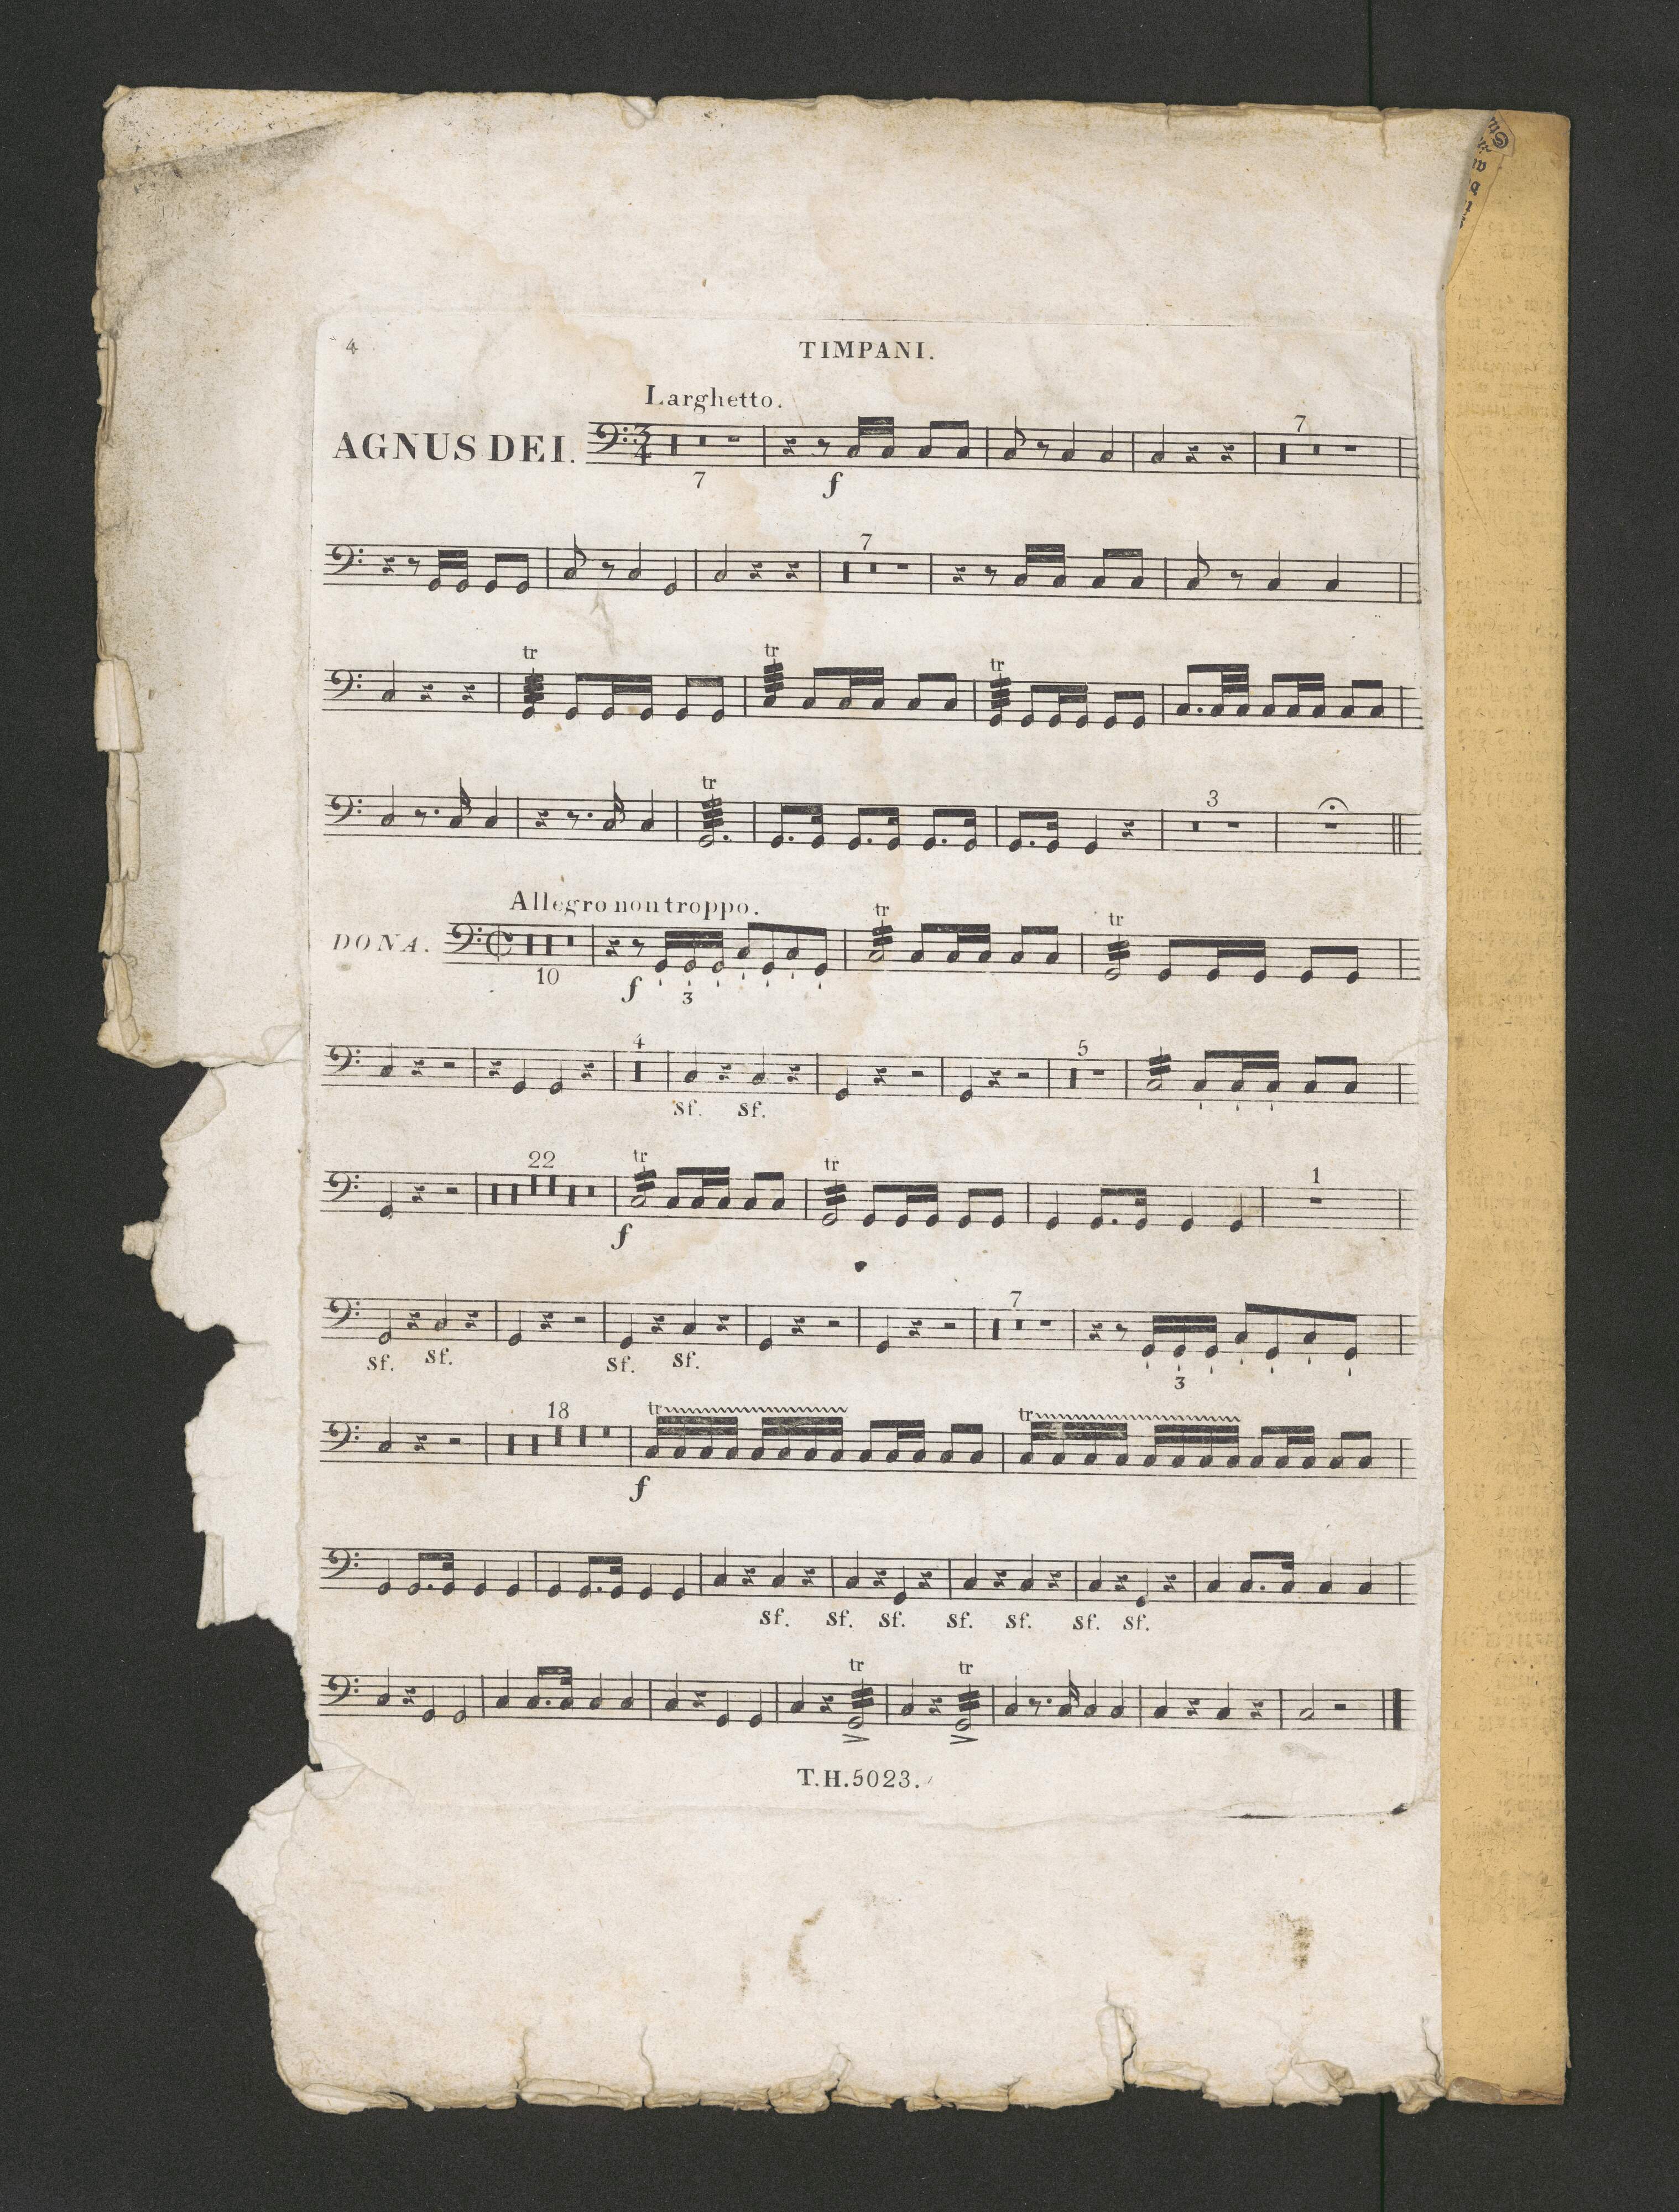 4
TIMPANI.
Larghetto.
AGNUS DEI.
7
7
f
7
tr
tr
tr
tr
3
Allegro non troppo.
DONA.
tr
tr
10
f
3
4
5
sf. sf.
22
tr
tr
1
f
7
sf. sf. sf. sf.
3
18
tr
tr
f
sf. sf. sf. sf. sf. sf. sf.
tr
tr
T.H.5023.